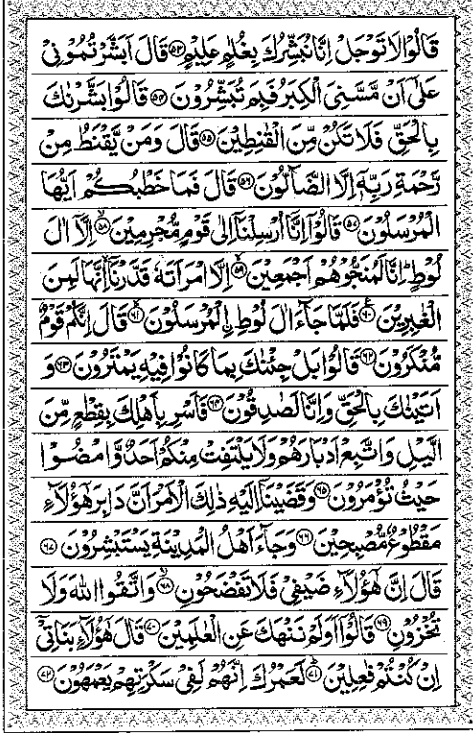 قَالُوْا لَا تَوْجَلْ اِنَّا نُبَشِّرُكَ بِغُلٰمٍ عَلِيْمٍ ۵۳ قَالَ اَبَشَّرْتُمُوْنِيْ
عَلٰٓى اَنْ مَّسَّنِيَ الْكِبَرُ فَبِمَ تُبَشِّرُوْنَ ۵۴ قَالُوْا بَشَّرْنٰكَ
بِالْحَقِّ فَلَا تَكُنْ مِّنَ الْقٰنِطِيْنَ ۵۵ قَالَ وَمَنْ يَّقْنَطُ مِنْ
رَّحْمَةِ رَبِّهٖٓ اِلَّا الضَّآلُّوْنَ ۵۶ قَالَ فَمَا خَطْبُكُمْ اَيُّهَا
الْمُرْسَلُوْنَ ۵۷ قَالُوْٓا اِنَّآ اُرْسِلْنَآ اِلٰى قَوْمٍ مُّجْرِمِيْنَ ۵۸ اِلَّآ اٰلَ
لُوْطٍ ؕ اِنَّا لَمُنَجُّوْهُمْ اَجْمَعِيْنَ ۵۹ اِلَّا امْرَاَتَهٗ قَدَّرْنَآ ۙ اِنَّهَا لَمِنَ
الْغٰبِرِيْنَ ۶۰ فَلَمَّا جَآءَ اٰلَ لُوْطِ ِۨالْمُرْسَلُوْنَ ۶۱ قَالَ اِنَّكُمْ قَوْمٌ
مُّنْكَرُوْنَ ۶۲ قَالُوْا بَلْ جِئْنٰكَ بِمَا كَانُوْا فِيْهِ يَمْتَرُوْنَ ۶۳ وَ
اَتَيْنٰكَ بِالْحَقِّ وَاِنَّا لَصٰدِقُوْنَ ۶۴ فَاَسْرِ بِاَهْلِكَ بِقِطْعٍ مِّنَ
الَّيْلِ وَاتَّبِعْ اَدْبَارَهُمْ وَلَا يَلْتَفِتْ مِنْكُمْ اَحَدٌ وَّامْضُوْا
حَيْثُ تُؤْمَرُوْنَ ۶۵ وَقَضَيْنَآ اِلَيْهِ ذٰلِكَ الْاَمْرَ اَنَّ دَابِرَ هٰٓؤُلَآءِ
مَقْطُوْعٌ مُّصْبِحِيْنَ ۶۶ وَجَآءَ اَهْلُ الْمَدِيْنَةِ يَسْتَبْشِرُوْنَ ۶۷
قَالَ اِنَّ هٰٓؤُلَآءِ ضَيْفِيْ فَلَا تَفْضَحُوْنِ ۶۸ وَاتَّقُوا اللّٰهَ وَلَا
تُخْزُوْنِ ۶۹ قَالُوْٓا اَوَلَمْ نَنْهَكَ عَنِ الْعٰلَمِيْنَ ۷۰ قَالَ هٰٓؤُلَآءِ بَنٰتِيْٓ
اِنْ كُنْتُمْ فٰعِلِيْنَ ۷۱ لَعَمْرُكَ اِنَّهُمْ لَفِيْ سَكْرَتِهِمْ يَعْمَهُوْنَ ۷۲